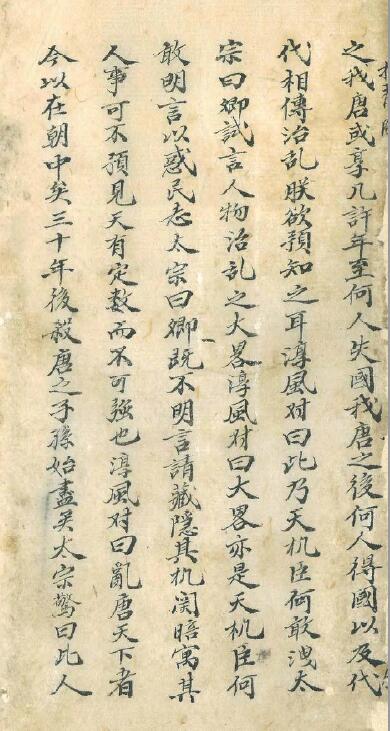 之我唐或享凡許年至何人失國我唐之後何人得國以及代
代相傳治乱朕欲預知之耳淳風对曰此乃天机臣何敢洩太
宗曰卿試言人物治乱之大畧淳風对曰大畧亦是天机臣何
敢明言以惑民志太宗曰卿既不明言請藏隱其机関暗寓其
人事可不預見天有定数而不可強也淳風对曰亂唐天下者
今以在朝中矣三十年後殺唐之子孫始盡矣太宗驚曰此人